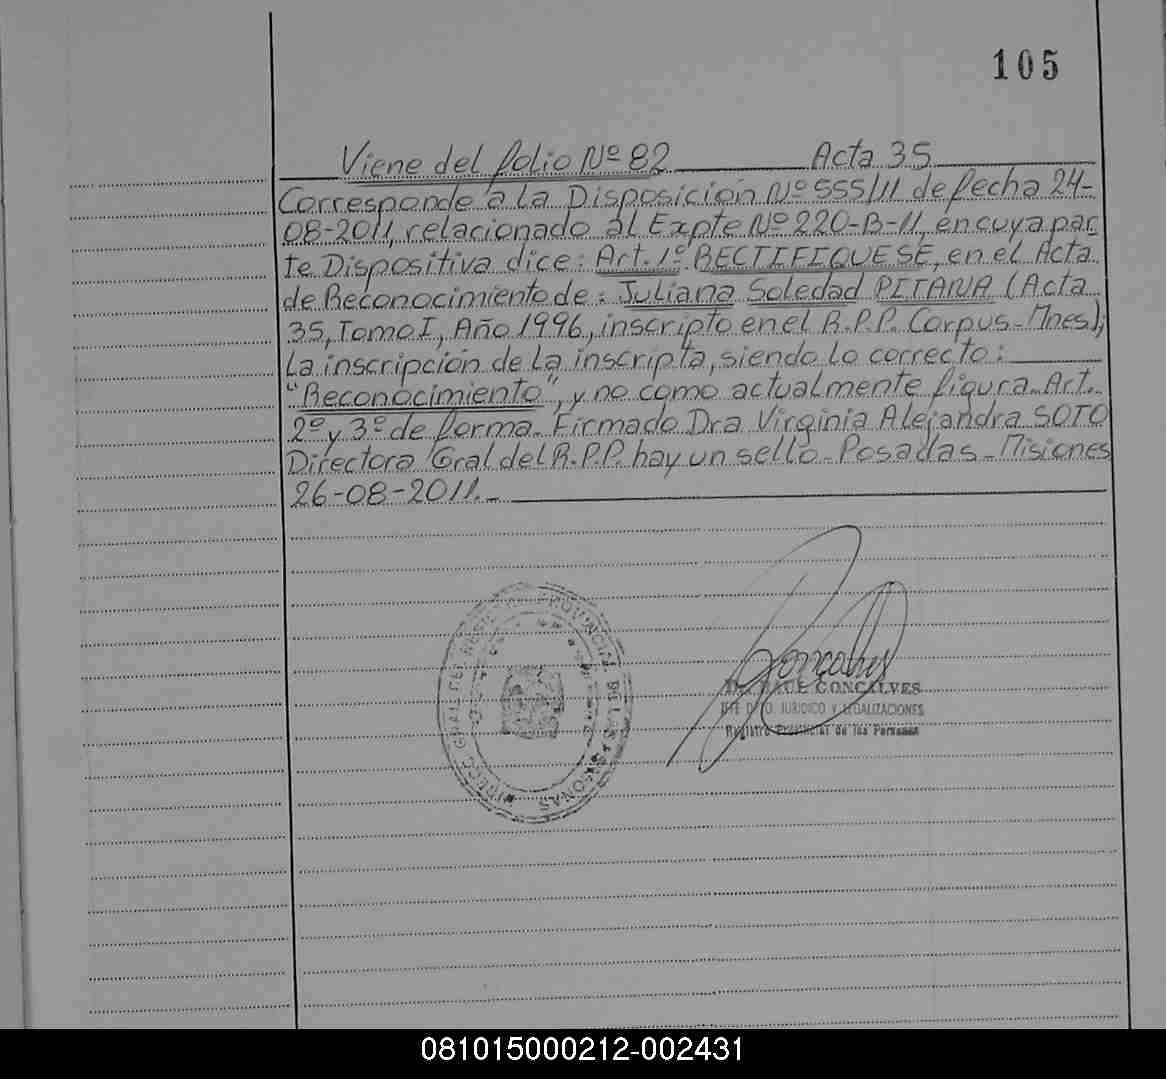 105
Viene del folio Nº 82 Acta 35
Corresponde a la Disposición Nº 555/11 de fecha 24-
08-2011, relacionado al Expte Nº 220-B-11, en cuya par
te Dispositiva dice: Art. 1º RECTIFIQUESE, en el Acta
de Reconocimiento de: Juliana Soledad PITANA (Acta
35, Tomo I, Año 1996, inscripto en el R.P.P. Corpus-Mnes);
La inscripción de la inscripta, siendo lo correcto:
"Reconocimiento", y no como actualmente figura. Art.
2º y 3º de forma. Firmado Dra Virginia Alejandra SOTO
Directora Gral del R.P.P. hay un sello-Posadas-Misiones
26-08-2011.-
PROVINCIAL DE LAS PERSONAS
RAUL GONCALVES
JEFE DPTO. JURIDICO Y LEGALIZACIONES
Registro Provincial de las Personas
081015000212-002431